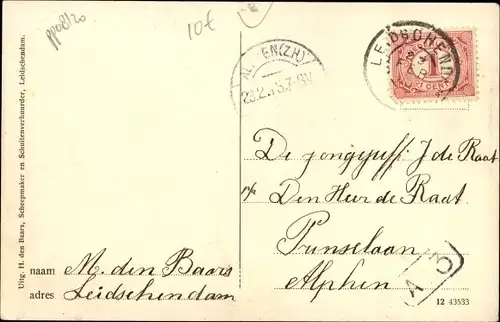 pp08/20
10€
Uitg. H. den Baars, Scheepmaker en Schuitenverhuurder, Leidschendam.
(ZH)
LEIDSCHENDAM
1
CENT
De Jongejuff J de Raat
p/a Den Heer de Raat
Prinselaan
Alphen
naam M. den Baars
adres Leidschendam
12 43533